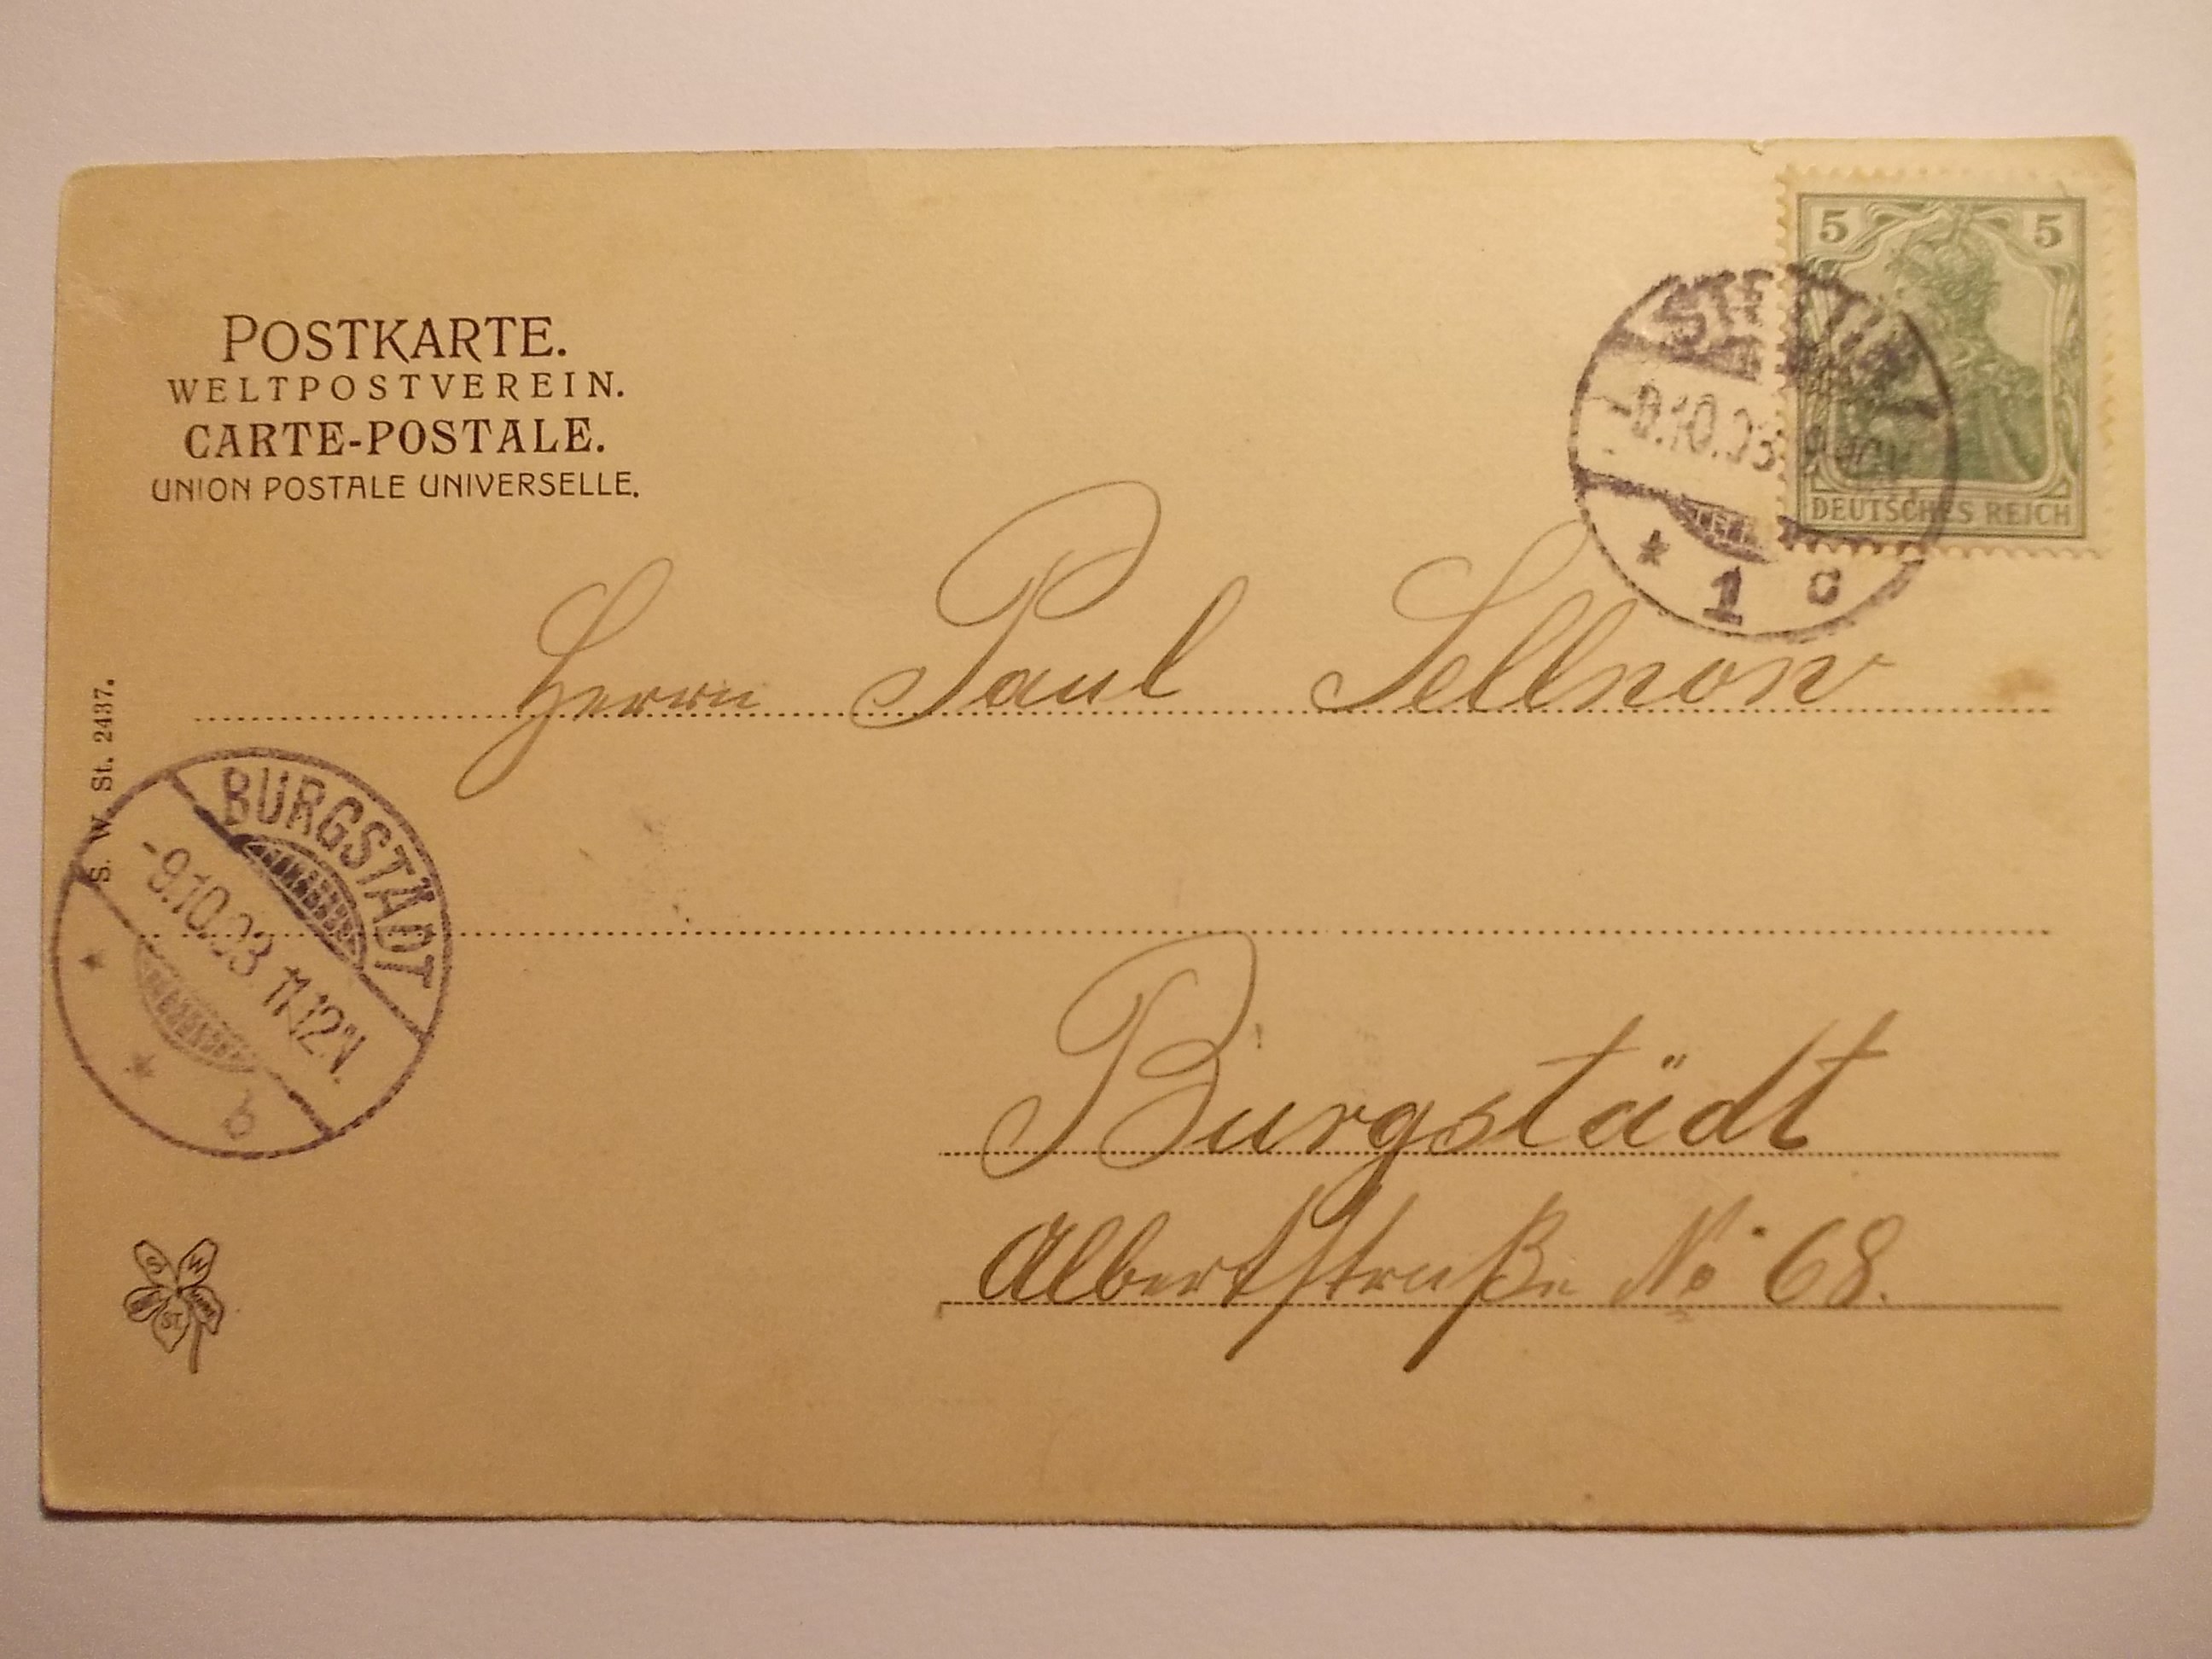 POSTKARTE.
WELTPOSTVEREIN.
CARTE-POSTALE.
UNION POSTALE UNIVERSELLE.
5 5
DEUTSCHES REICH
STETTIN
10.03
* 1 c
Herrn Paul Sellnow
S. W. St. 2437.
BURGSTÄDT
-9.10.03. 11-12N.
* * b
Burgstädt
Albertstraße No 68.
S W
ST.